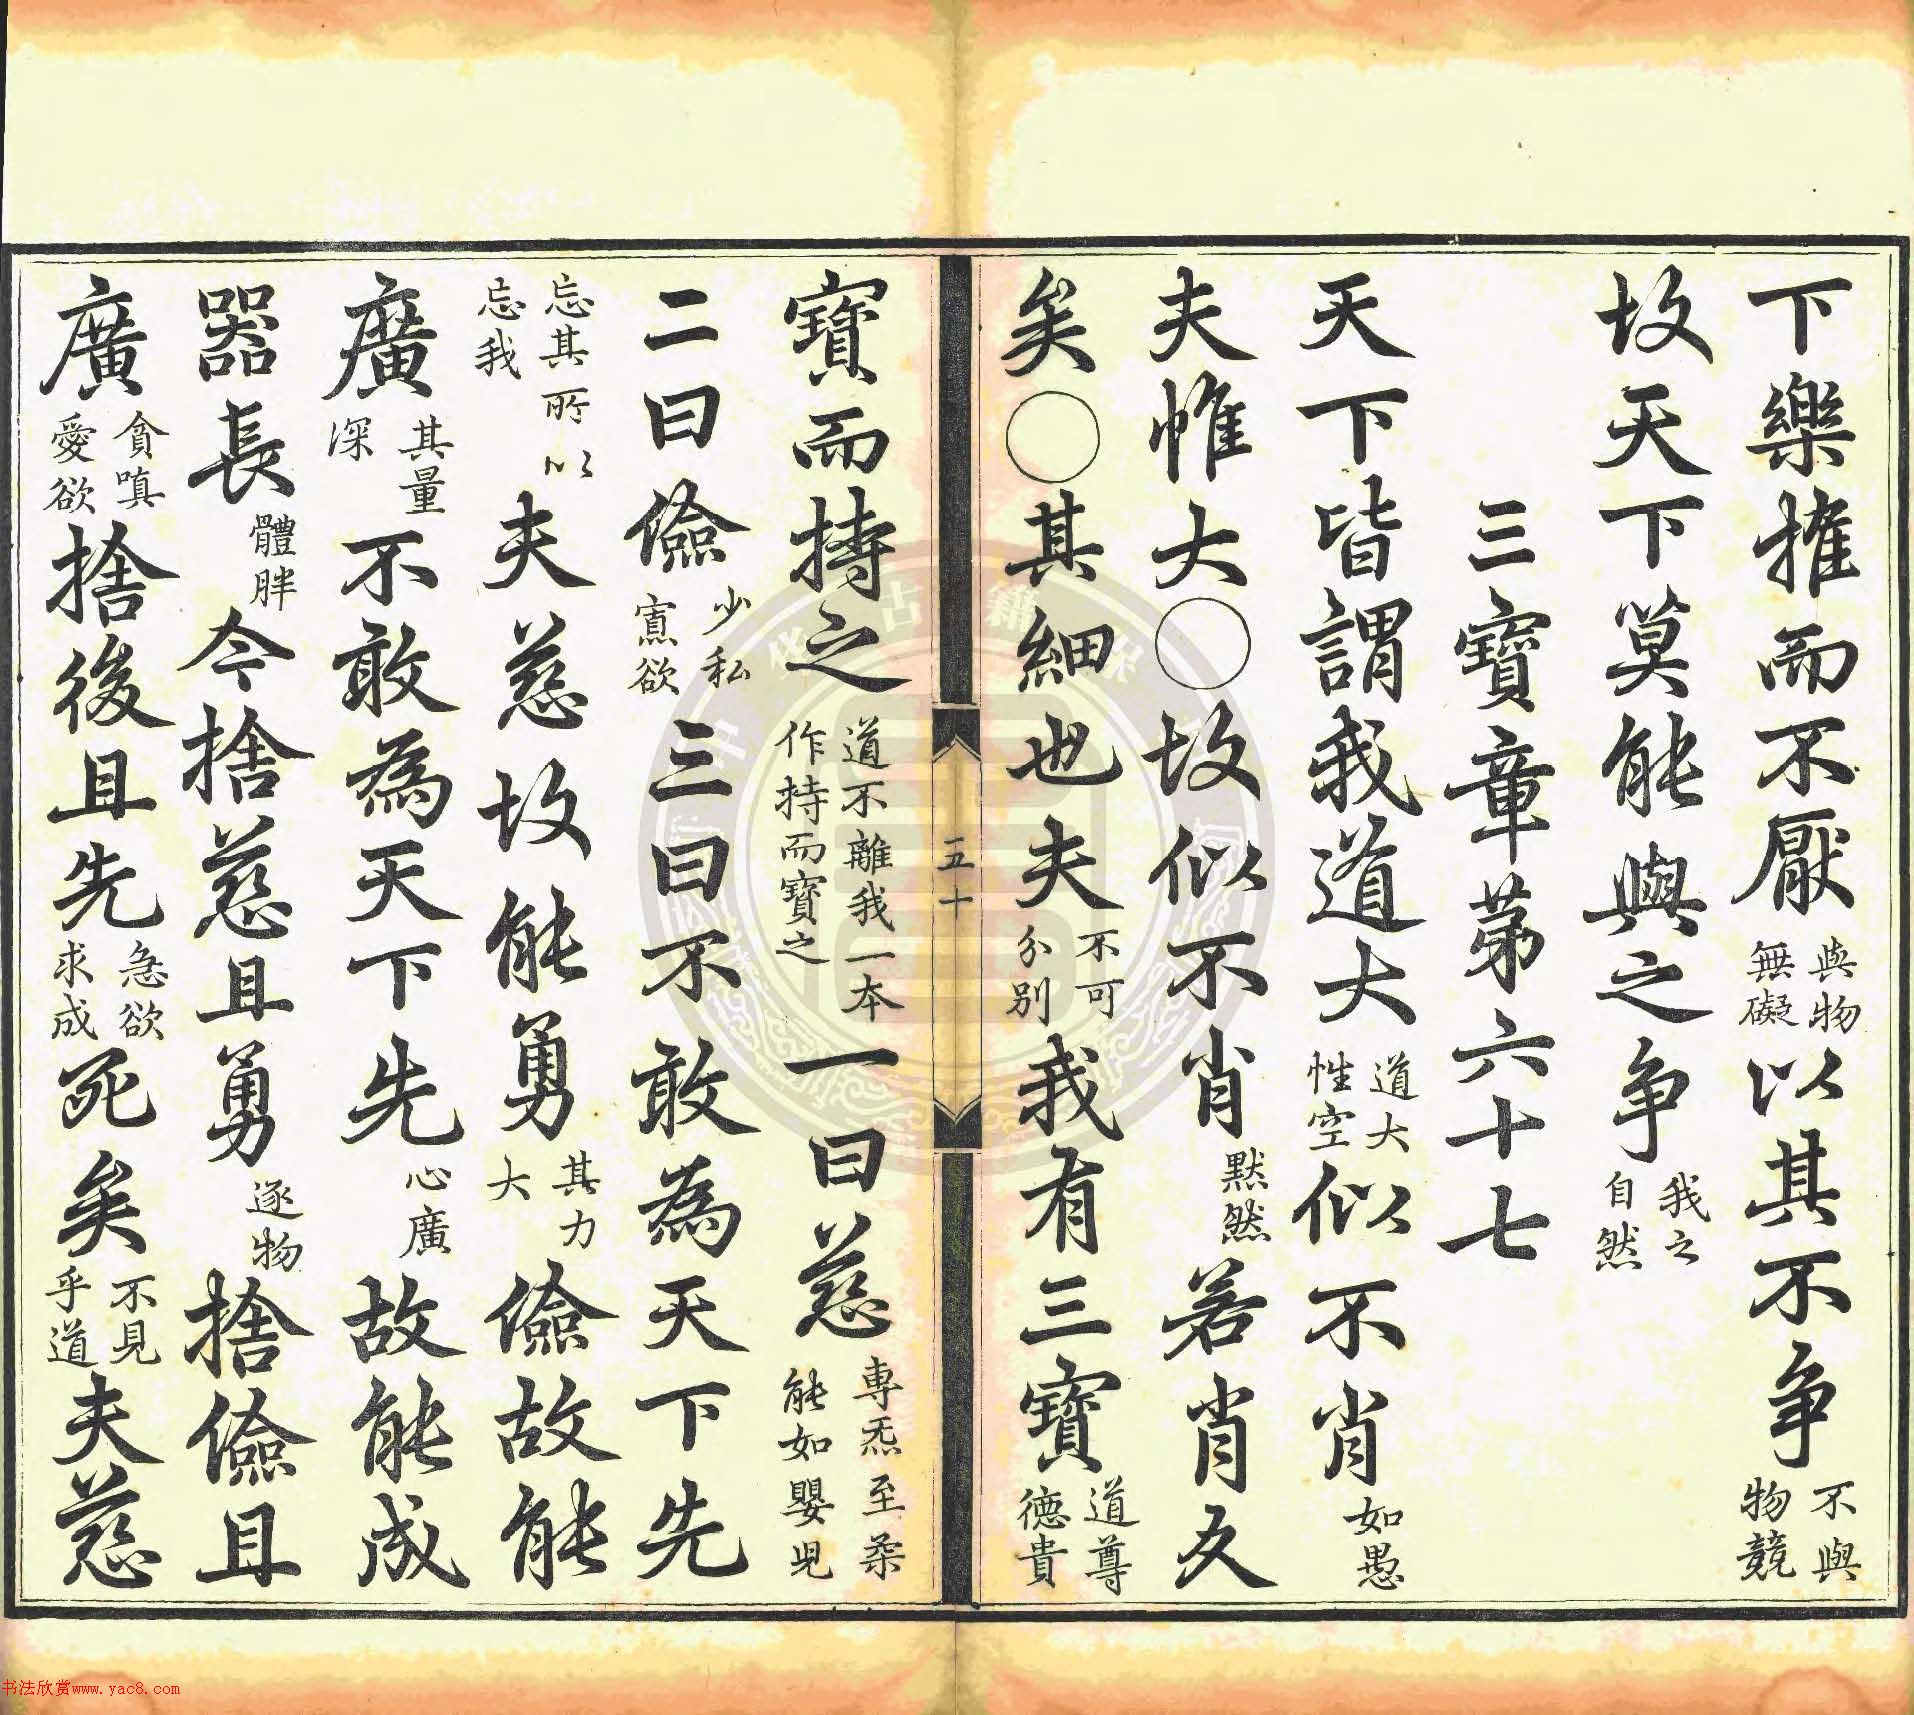 下樂推而不厭與物無礙以其不争不與物競
故天下莫能與之争我之自然
三寶章第六十七
天下皆謂我道大道大性空似不肖如愚
夫惟大○故似不肖默然若肖久
矣○其細也夫不可分別我有三寶道尊德貴
五十
寶而持之道不離我一本作持而寶之一曰慈專炁至柔能如嬰児
二曰儉少私寡欲三曰不敢為天下先
忘其所以忘我夫慈故能勇其力大儉故能
廣其量深不敢為天下先心廣故能成
器長體胖今捨慈且勇逐物捨儉且
廣貪嗔愛欲捨後且先急欲求成死矣不見乎道夫慈
书法欣赏www.yac8.com